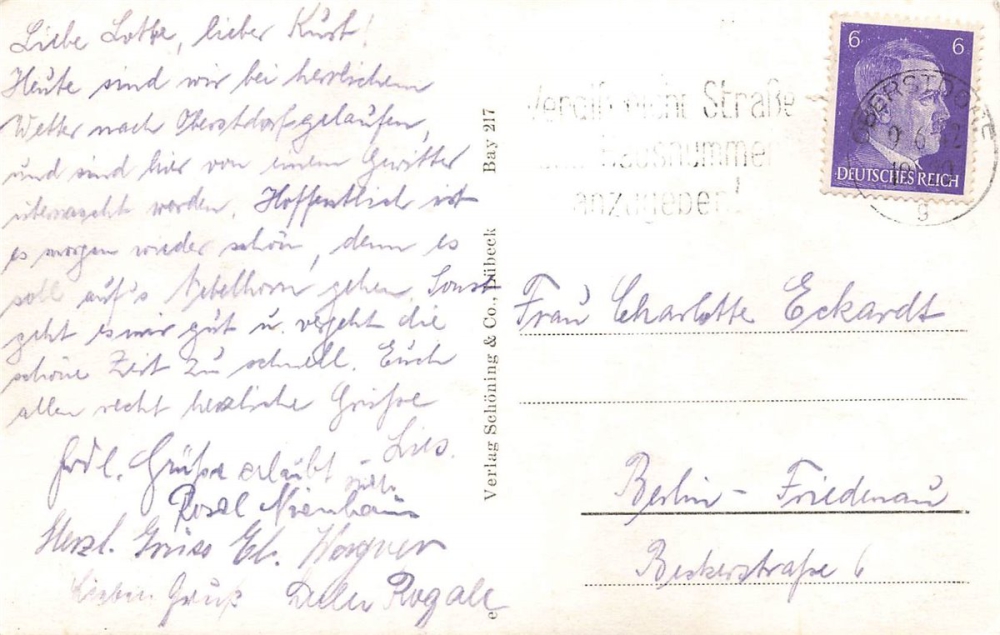 Liebe Lotte, lieber Kurt!
Heute sind wir bei herrlichem
Wetter nach Oberstdorf gelaufen,
und sind hier von einem Gewitter
überrascht worden. Hoffentlich ist
es morgen wieder schön, denn es
soll auf's Nebelhorn gehen. Sonst
geht es mir gut u. vergeht die
schöne Zeit zu schnell. Euch
allen recht herzliche Grüße
Lies.
Frdl. Grüße erlaubt sich
Rosel Nienhaus
Herzl. Gruss El. Wagner
Lieben Gruß Rogale
Verlag Schöning & Co., Lübeck Bay 217
Straße
Hausnummer
anzugeben!
6 6
DEUTSCHES REICH
OBERSTDORF
9.6.42
g
Frau Charlotte Eckardt
Berlin - Friedenau
Beckerstraße 6